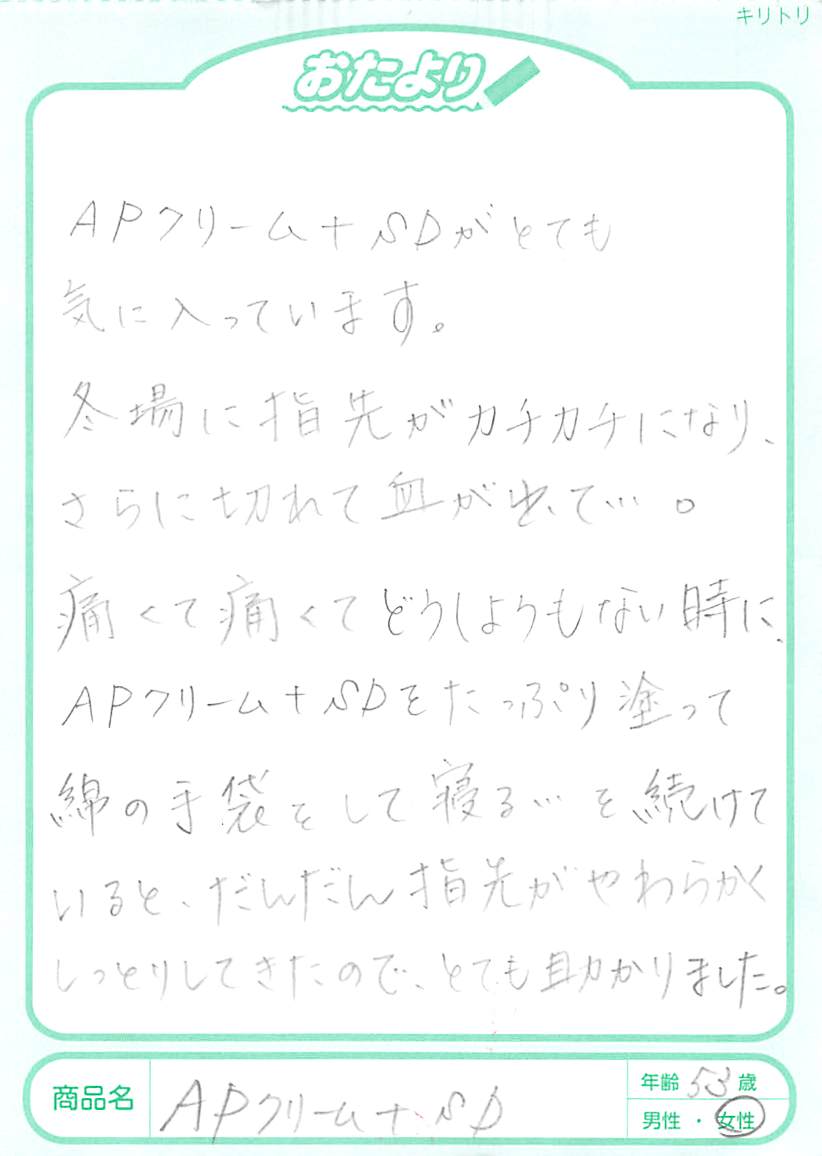 キリトリ
おたより
APクリーム+SDがとても
気に入っています。
冬場に指先がカチカチになり、
さらに切れて血が出て…。
痛くて痛くてどうしようもない時に、
APクリーム+SDをたっぷり塗って
綿の手袋をして寝る…を続けて
いると、だんだん指先がやわらかく
しっとりしてきたので、とても助かりました。
商品名 APクリーム+SD
年齢 53 歳
男性・女性